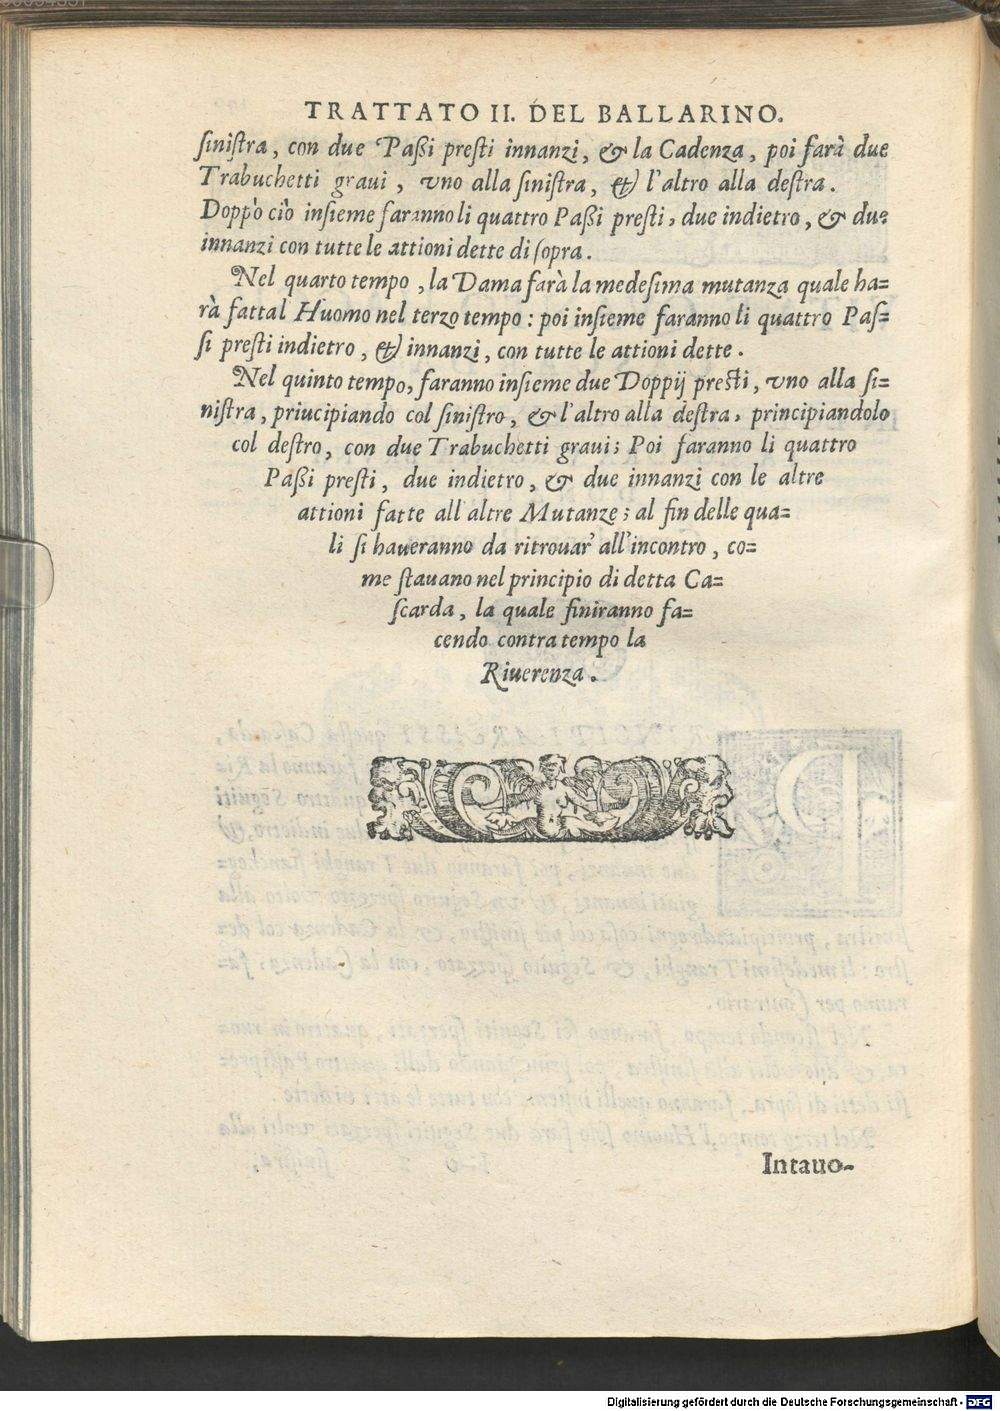 TRATTATO II. DEL BALLARINO.
ſiniſtra, con due Paßi preſti innanzi, & la Cadenza, poi farà due
Trabuchetti graui, vno alla ſiniſtra, & l'altro alla deſtra.
Doppò ciò inſieme faranno li quattro Paßi preſti, due indietro, & due
innanzi con tutte le attioni dette di ſopra.
Nel quarto tempo, la Dama farà la medeſima mutanza quale ha=
rà fatta l Huomo nel terzo tempo: poi inſieme faranno li quattro Paſ=
ſi preſti indietro, & innanzi, con tutte le attioni dette.
Nel quinto tempo, faranno inſieme due Doppij preſti, vno alla ſi=
niſtra, priucipiando col ſiniſtro, & l'altro alla deſtra, principiandolo
col deſtro, con due Trabuchetti graui; Poi faranno li quattro
Paßi preſti, due indietro, & due innanzi con le altre
attioni fatte all altre Mutanze; al fin delle qua=
li ſi haueranno da ritrouar' all'incontro, co=
me ſtauano nel principio di detta Ca=
ſcarda, la quale finiranno fa=
cendo contra tempo la
Riuerenza.
Intauo-
Digitalisierung gefördert durch die Deutsche Forschungsgemeinschaft - DFG